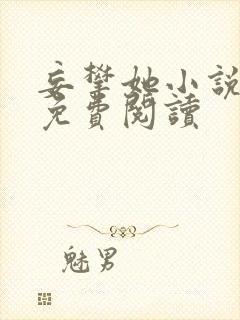 妄攀她小說
免費閱讀
魅男